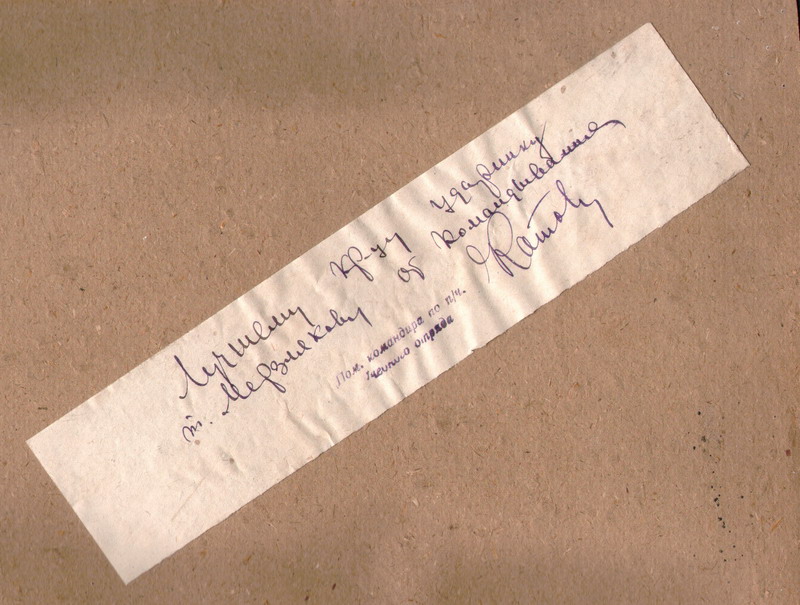 Лучшему кр-цу ударнику
т. Мерзлякову от командывания
Пом. командира по п/ч.
отряда